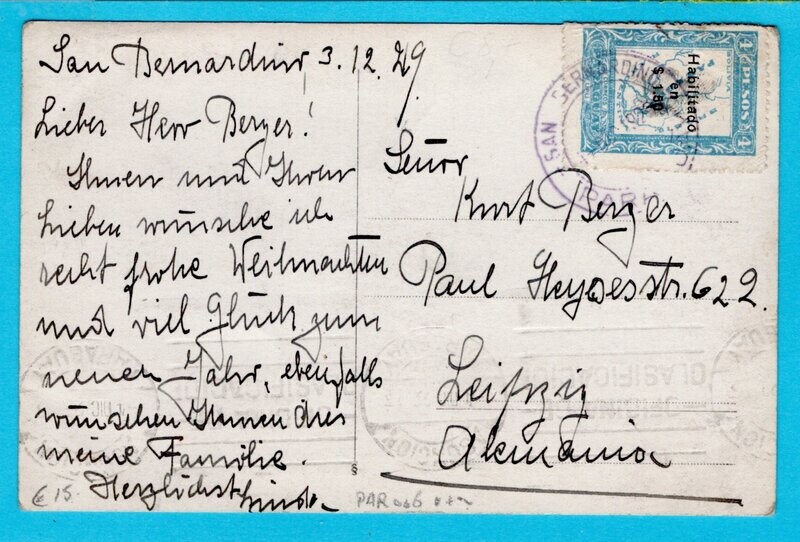 San Bernardino, 3.12.29
Lieber Herr Berger!
Ihnen und Ihren
Lieben wünsche ich
recht frohe Weihnachten
und viel Glück zum
neuen Jahr, ebenfalls
wünschen Ihnen dies
meine Familie.
Herzlichst
Señor
Kurt Berger
Paul Heysestr. 622.
Leipzig
Alemania
4 PESOS 4
Habilitado
en
$ 1.50
SAN BERNARDINO
PAR
CLASIFICACIO
€ 15
PAR
§